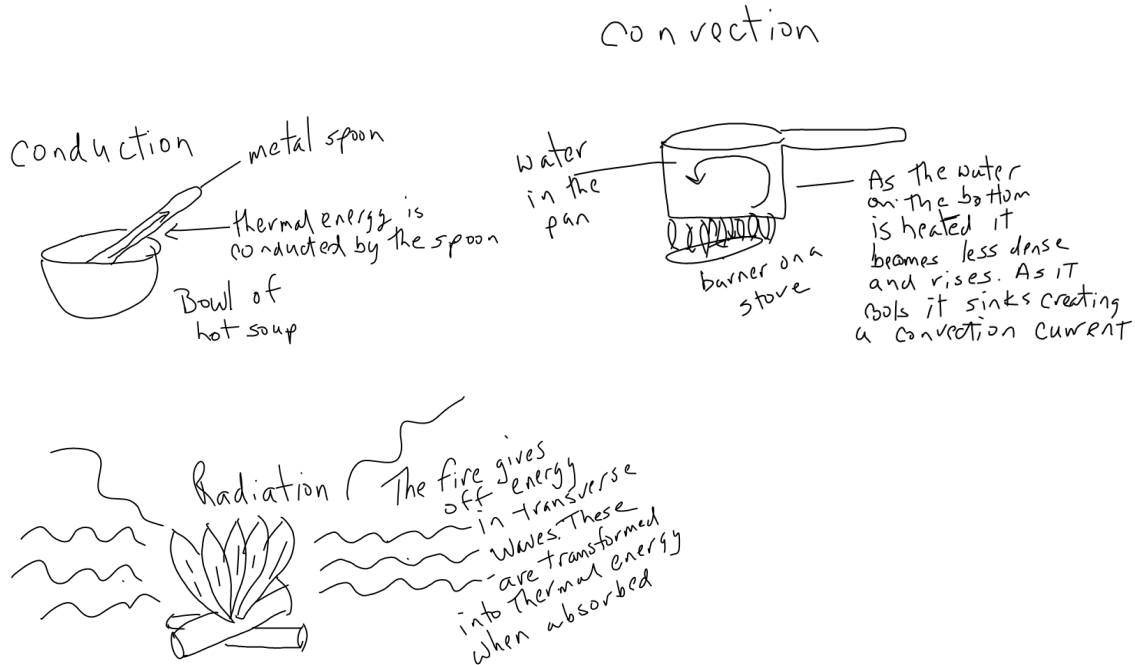 Convection
Conduction
metal spoon
thermal energy is
conducted by the spoon
Bowl of
hot soup
water
in the
pan
burner on a
stove
As the water
on the bottom
is heated it
becomes less dense
and rises. As it
cools it sinks creating
a convection current
Radiation
The fire gives
off energy
in transverse
waves. These
are transformed
into thermal energy
when absorbed